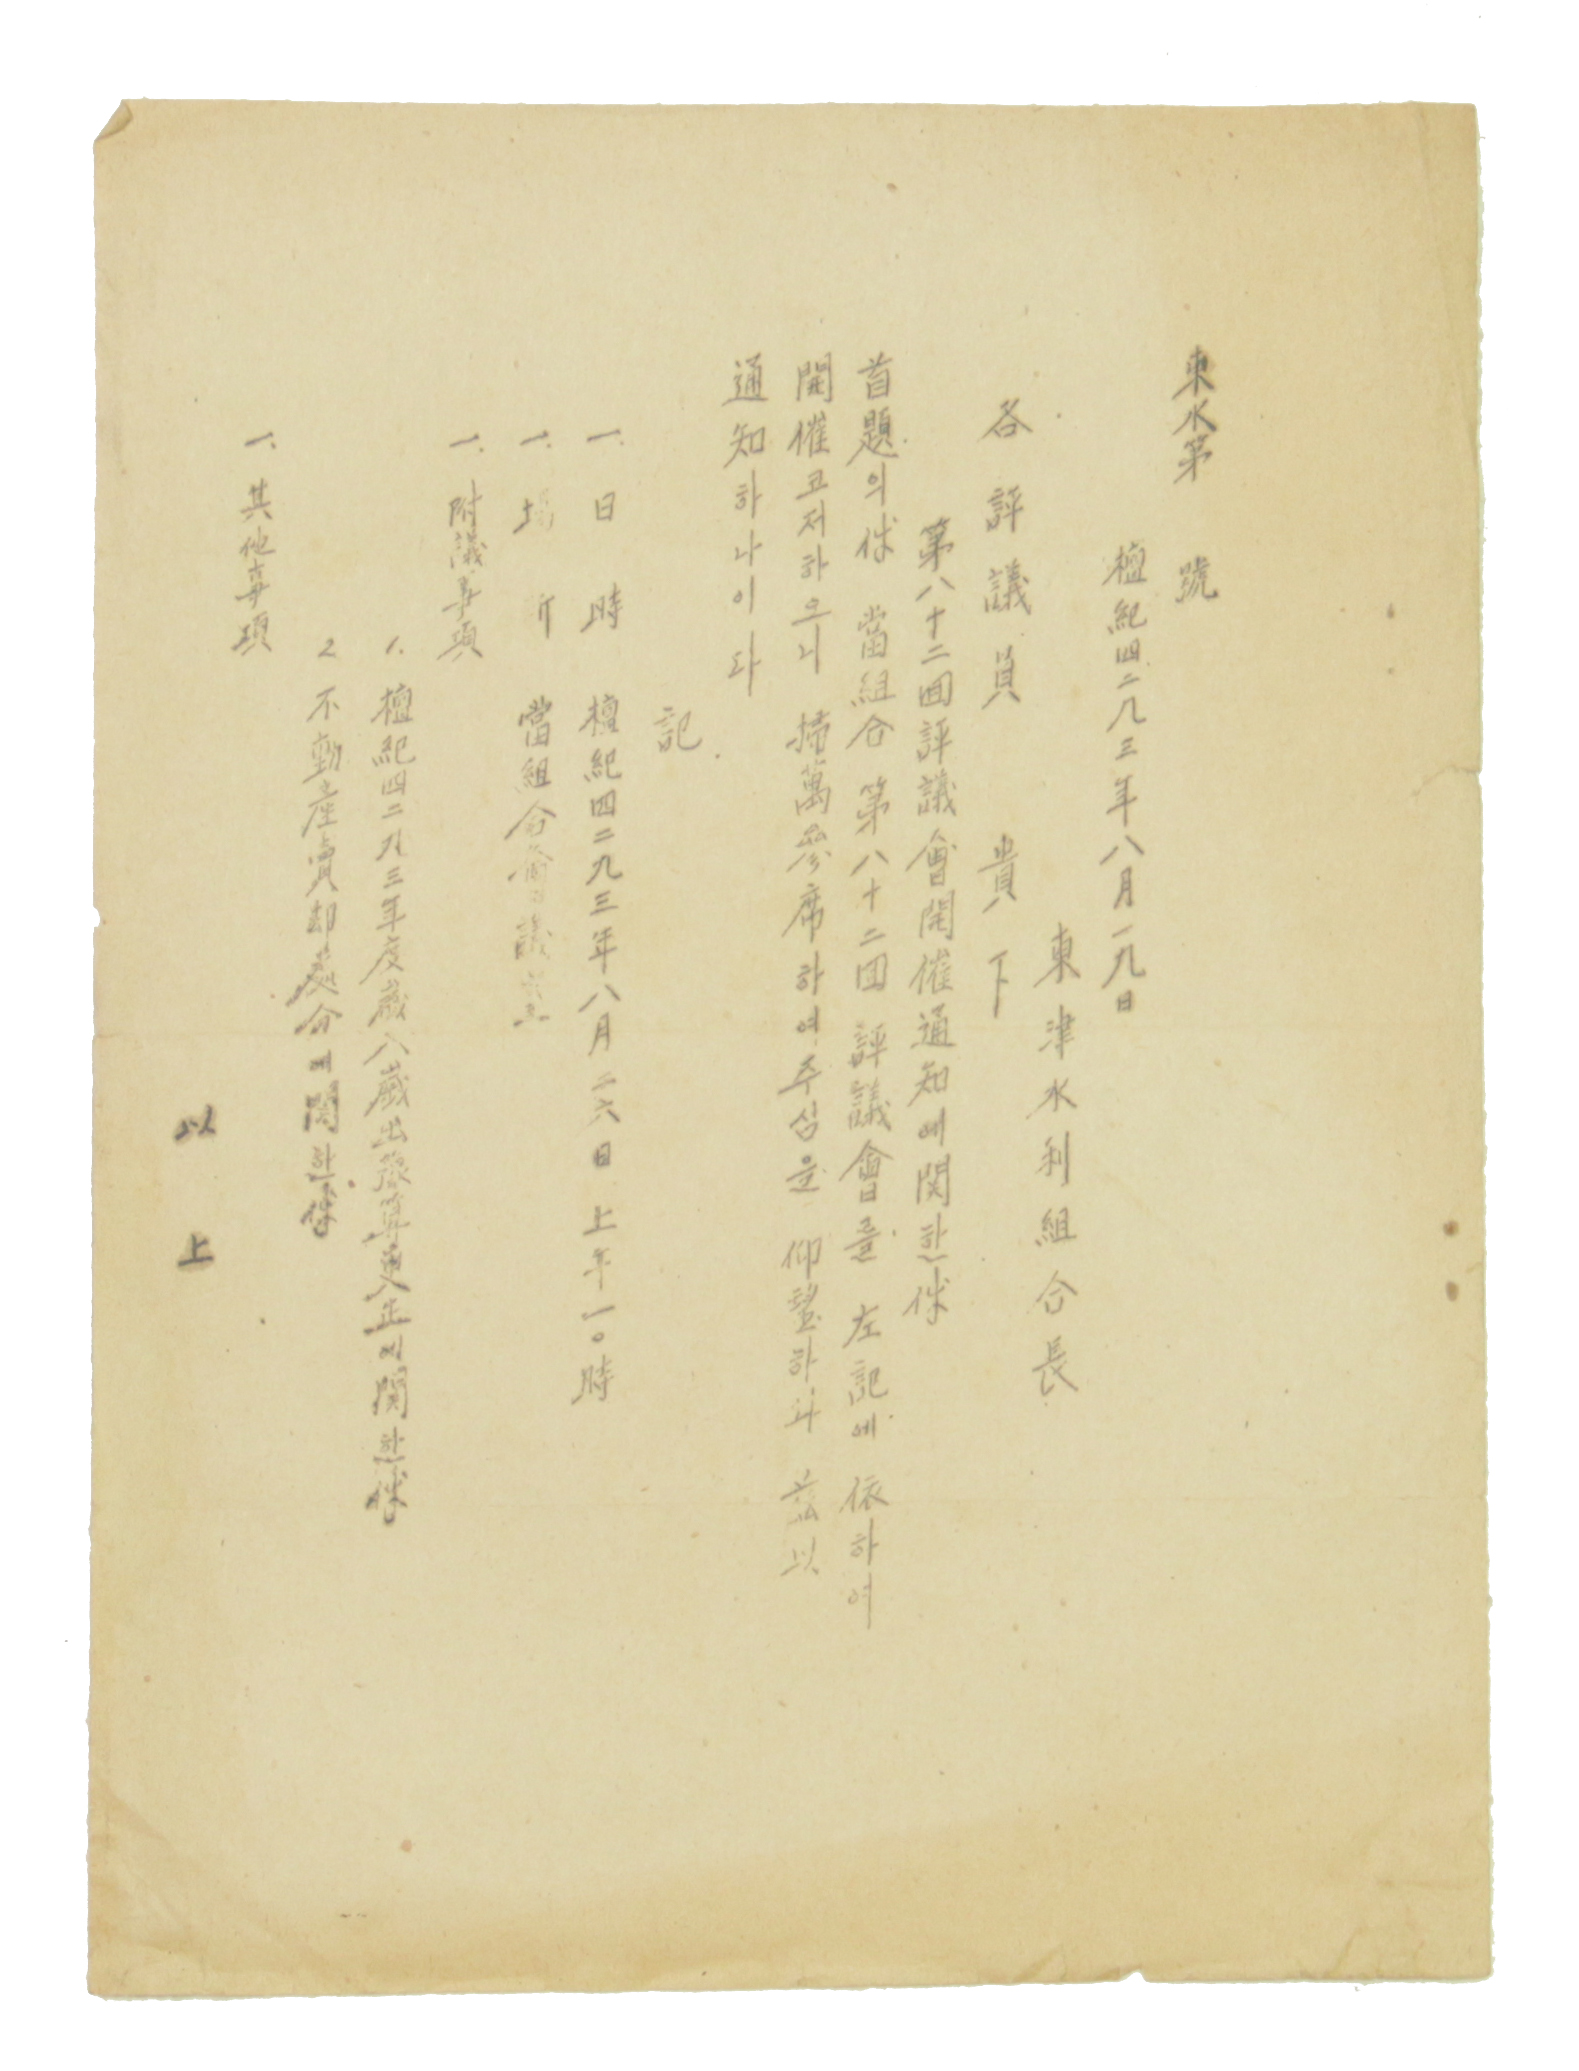 東水第　號
檀紀四二九三年八月一九日
東津水利組合長
各評議員　貴下
第八十二回評議會開催通知에関한件
首題의件 當組合 第八十二回 評議會를 左記에 依하여
開催코저하오니 掃萬參席하여주심을 仰望하와 玆以
通知하나이다
記
一. 日時 檀紀四二九三年八月二六日 上午一〇時
一. 場所 當組合會議室
一. 附議事項
1. 檀紀四二九三年度歲入歲出豫算更正에関한件
2 不動産賣却處分에関한件
一. 其他事項
以上